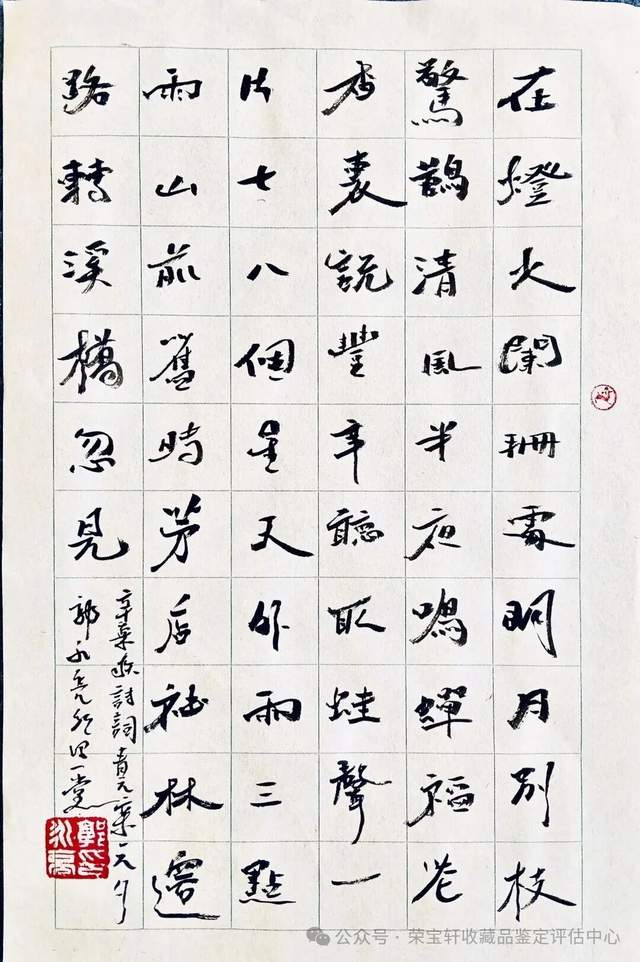 在燈火闌珊處明月別枝
驚鵲清風半夜鳴蟬稻花
香裏說豐年聽取蛙聲一
片七八個星天外雨三點
雨山前舊時茅店社林邊
路轉溪橋忽見
辛棄疾詩詞青玉案元夕
郭永亮
公众号 · 荣宝轩收藏品鉴定评估中心